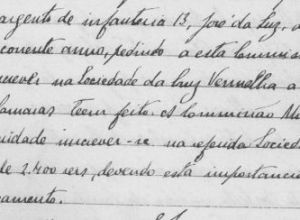 argento de infanteria 13, José da Luz, a
corrente anno, pedindo a esta Commiss
screver na Sociedade da Cruz Vermelha a
Camaras teem feito. es Commissão Mu
nidade inscrever-se na referida Socied
de 2.400 reis, devendo esta importancia
gamento.